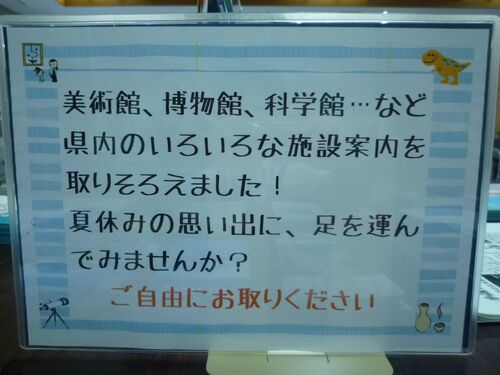 美術館、博物館、科学館…など
県内のいろいろな施設案内を
取りそろえました！
夏休みの思い出に、足を運ん
でみませんか？
ご自由にお取りください